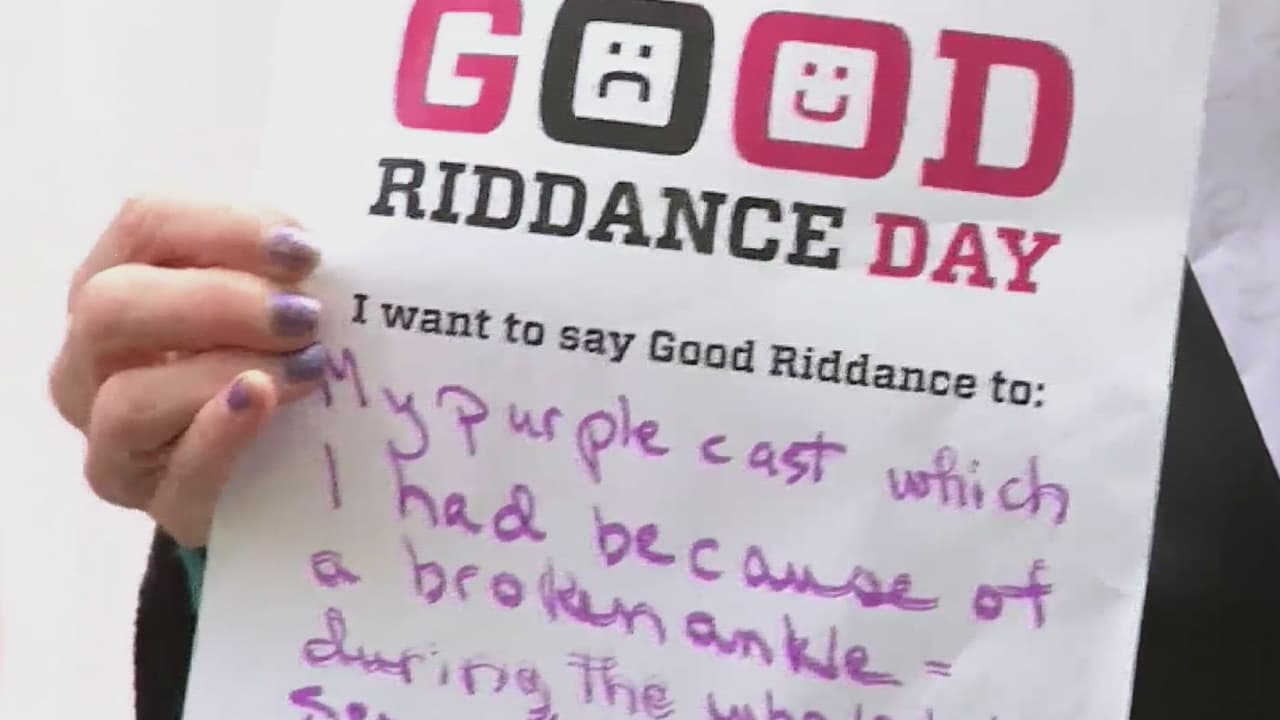 GOOD
RIDDANCE DAY
I want to say Good Riddance to:
My purple cast which
I had because of
a broken ankle =
during The